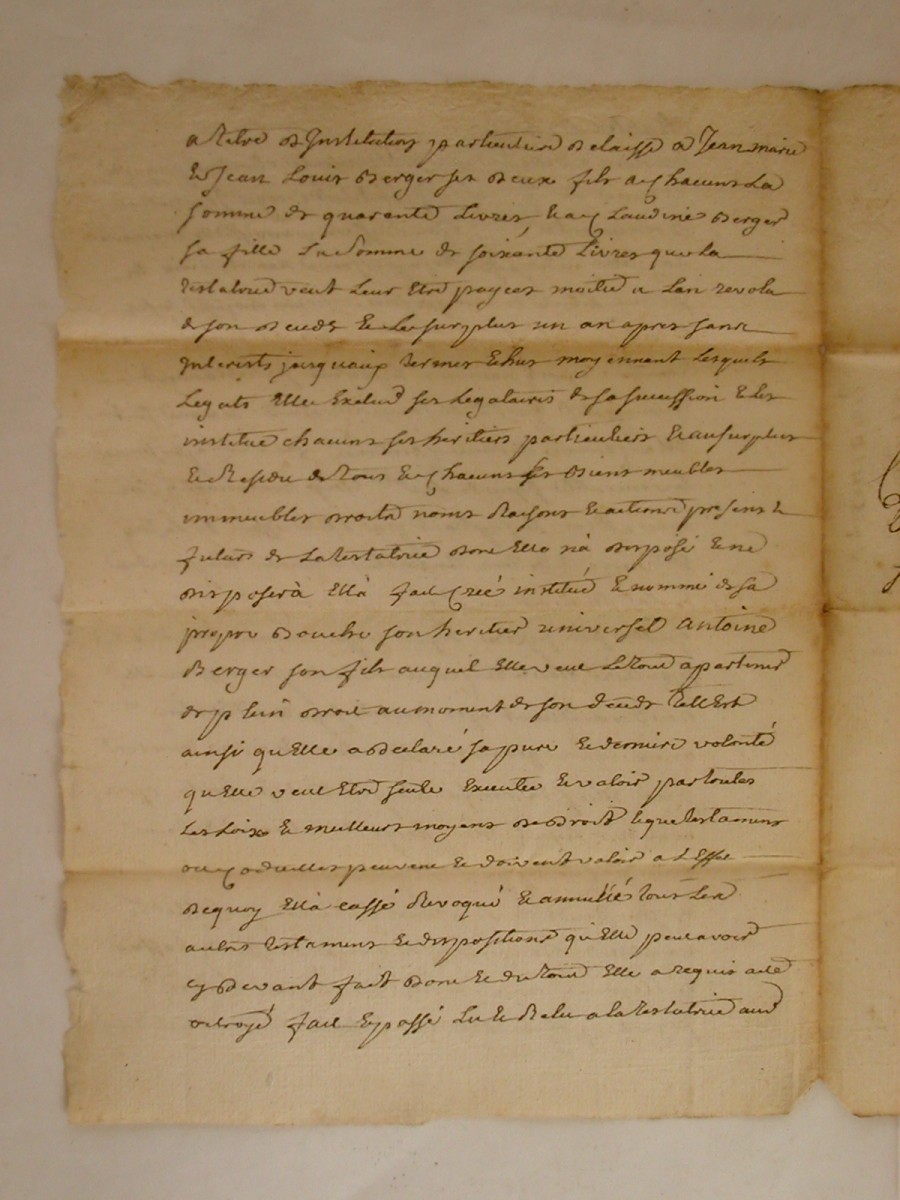 a titre d'Institution particuliere delaisse a Jean marie
Et Jean Louis Berger ses deux fils a Chacuns La
somme de quarente Livres, Et a Claudine Berger
sa fille La Somme de soixante Livres que La
testatrice veut Leur Etre payees moitié a Lan revolu
de son deceds Et Le surplus un an apres sans
Interests jusquaux termes Echus moyennant Lesquels
Legats Elle Exclud ses Legataires de sa succession Et Les
institue chacuns ses heritiers particuliers Et au surplus
Et Residu de tous Et Chacuns ses Biens meubles
immeubles droits noms Raisons Et actions presents Et
futurs de La testatrice dont Elle n'à disposé Et ne
disposerà Ellà fait Créé institué Et nommé de sa
propre Bouche son heritier universel Antoine
Berger son fils auquel Elle veut Le tout apartenir
de plein droit au moment de son deceds telle Est
ainsi qu'Elle a declaré sa pure Et derniere volonté
qu'Elle veut Etre seule Executée Et valoir par toutes
Les Loix Et meilleurs moyens de droit que testaments
ou Codicilles peuvent Et doivent valoir a L'Effet
de quoy Ellà cassé Revoqué Et annullé tous Les
autres testaments Et dispositions qu'Elle peut avoir
cy devant fait dont Et du tout Elle a requis acte
octroyé fait Et passé Lu Et Relu a la testatrice aud